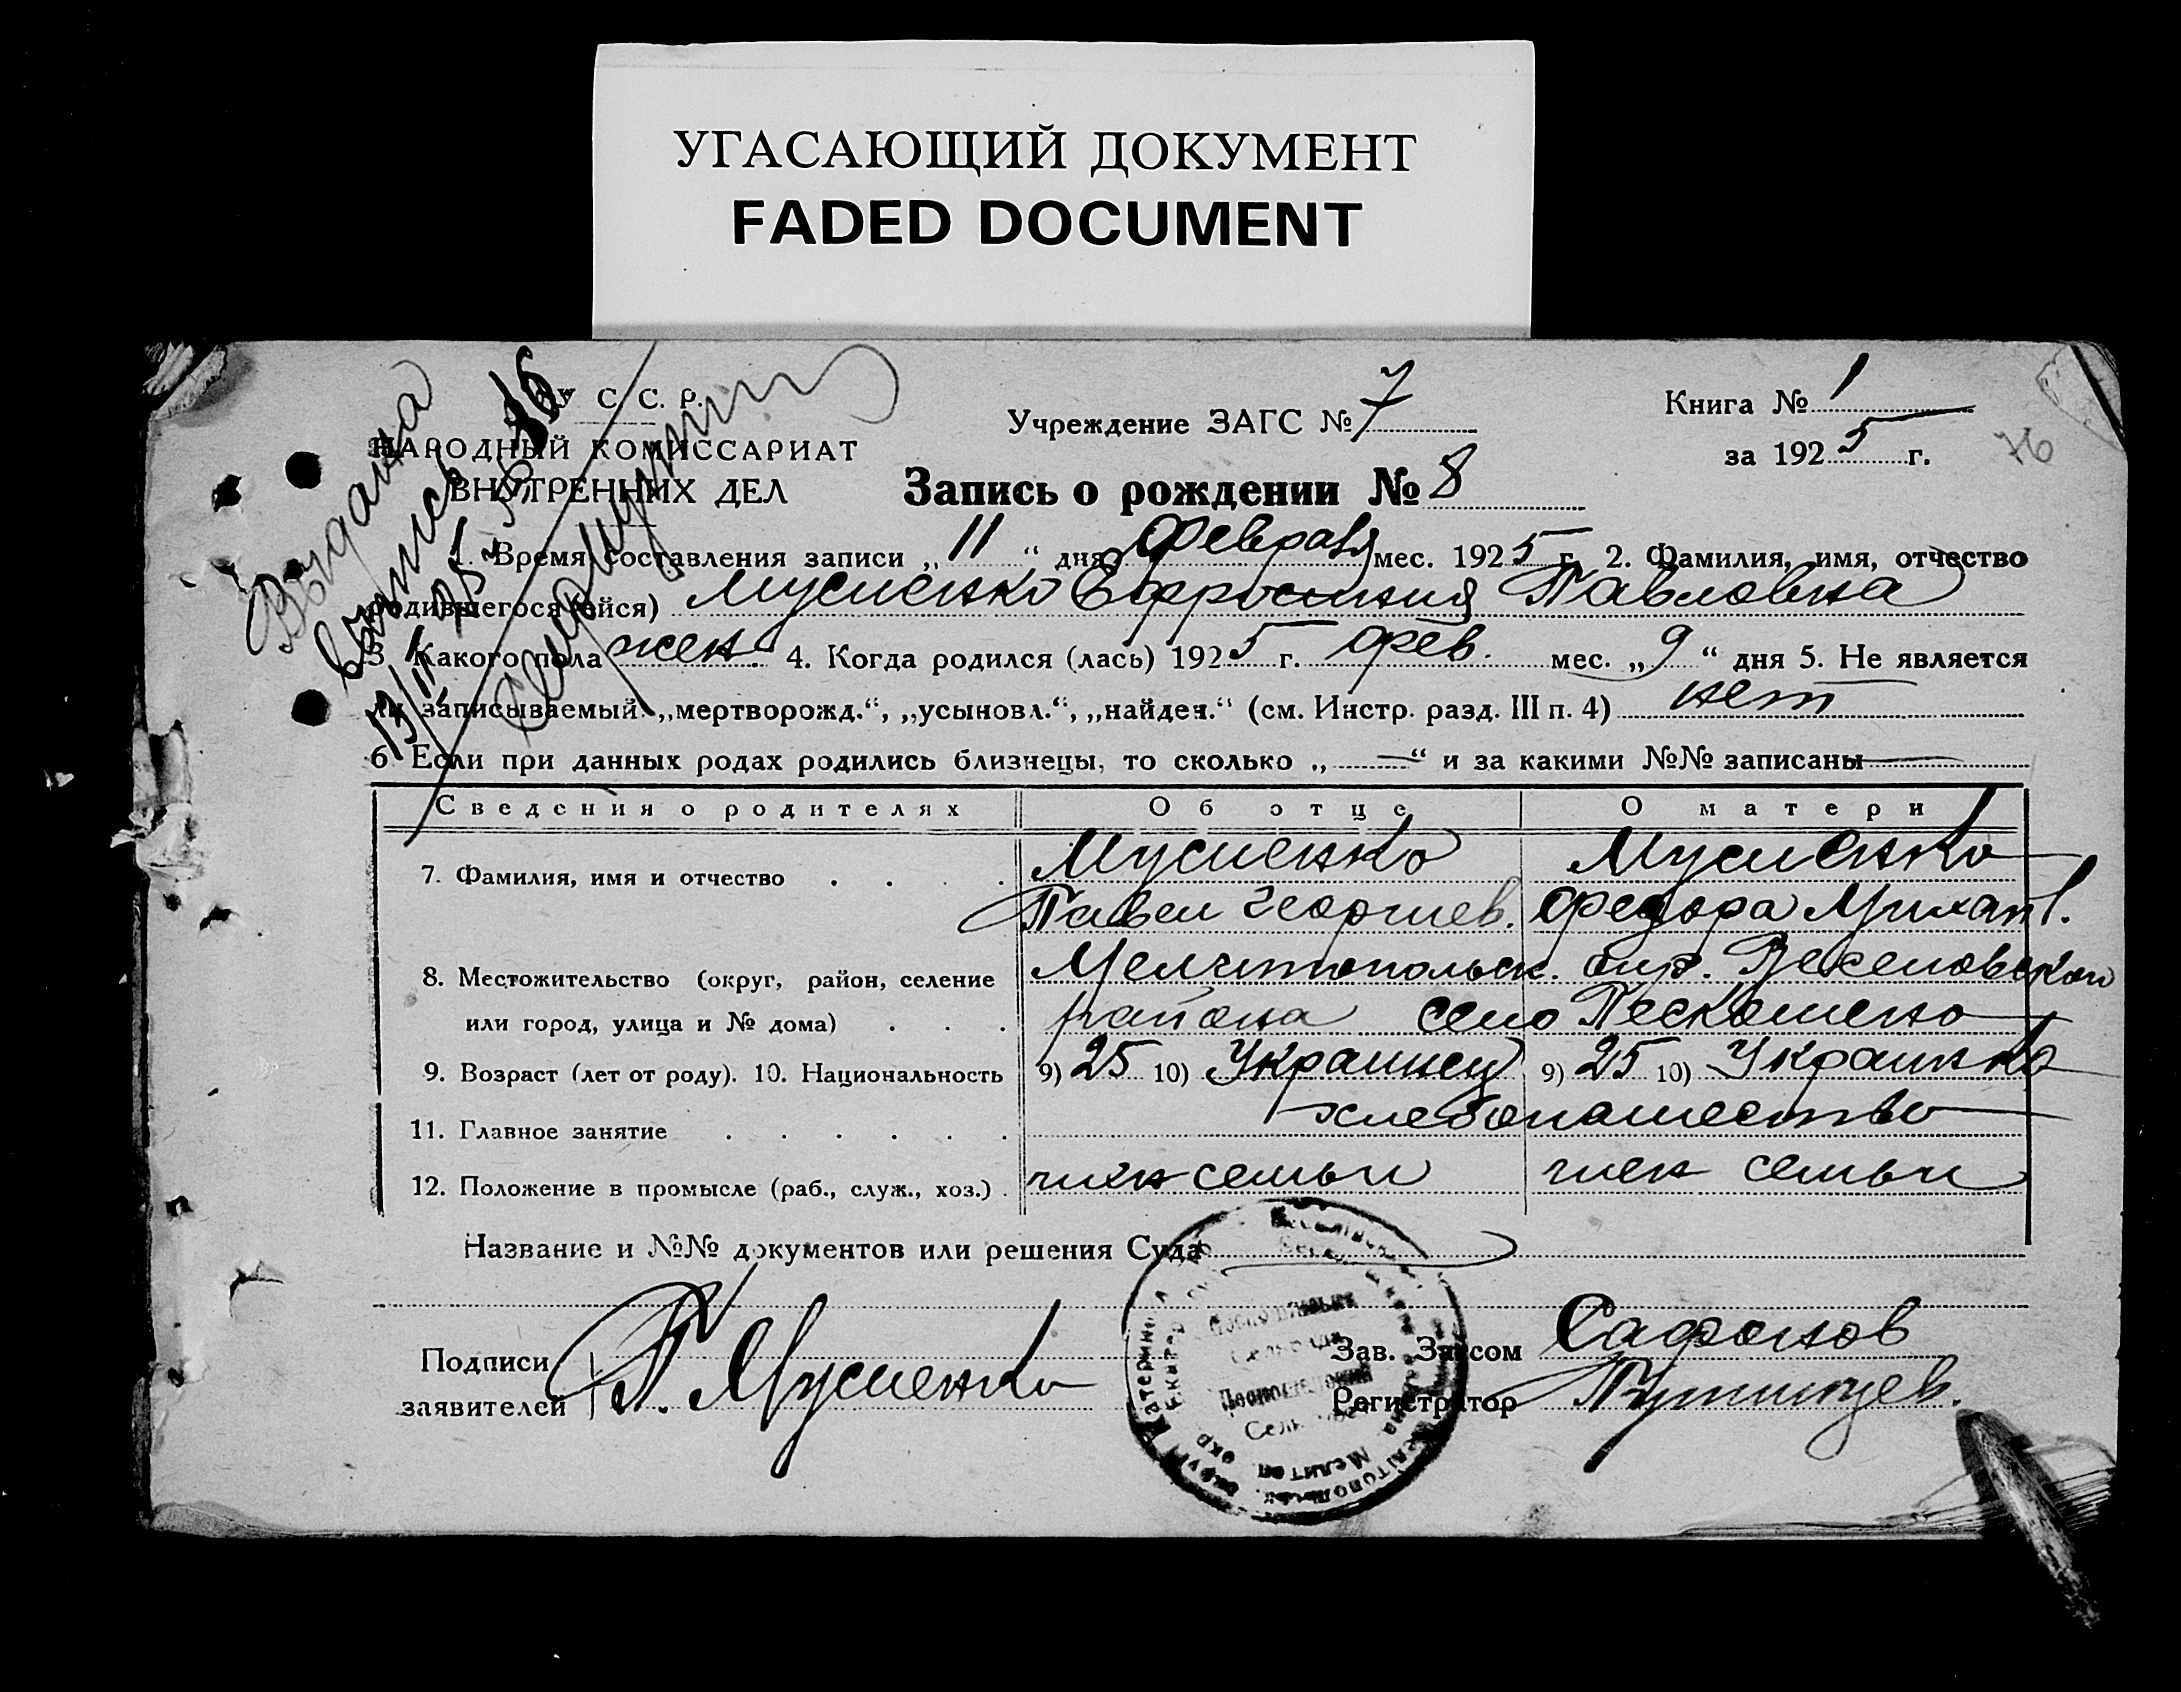 УГАСАЮЩИЙ ДОКУМЕНТ
FADED DOCUMENT
У С. С. Р.
НАРОДНЫЙ КОМИССАРИАТ
ВНУТРЕННИХ ДЕЛ
Выдана
выпись
Учреждение ЗАГС № 7
Книга № 1
за 1925 г.
76
Запись о рождении № 8
1. Время составления записи „11“ дня февраля мес. 1925 г. 2. Фамилия, имя, отчество
родившегося(ейся) Мусиенко Ефросиния Павловна
3 Какого пола жен. 4. Когда родился (лась) 1925 г. фев. мес. „9“ дня 5. Не является
ли записываемый: „мертворожд.“, „усыновл.“, „найден.“ (см. Инстр. разд. III п. 4) нет
6 Если при данных родах родились близнецы, то сколько „ — “ и за какими №№ записаны —
Сведения о родителях Об отце О матери
7. Фамилия, имя и отчество . . . . Мусиенко Мусиенко
Павел Георгиев. Федора
8. Местожительство (округ, район, селение Мелитопольск. окр. Веселовского
или город, улица и № дома) . . . района село Пескошено
9. Возраст (лет от роду). 10. Национальность 9) 25 10) Украинец 9) 25 10) Украинка
11. Главное занятие . . . . . . хлебопашество
12. Положение в промысле (раб., служ., хоз.) . член семьи член семьи
Название и №№ документов или решения Суда
Подписи
заявителей П. Мусиенко
Зав. Загсом Сафонов
Регистратор